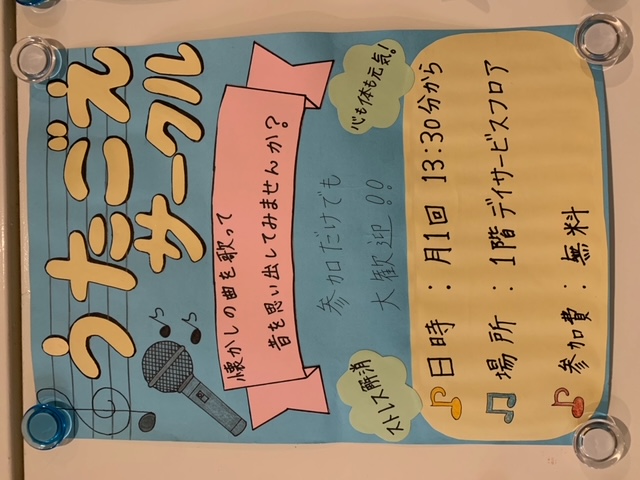 うたごえ
サークル
懐かしの曲を歌って
昔を思い出してみませんか？
心も体も元気！
参加だけでも
大歓迎!!
ストレス解消
日時：月1回 13:30分から
場所：1階デイサービスフロア
参加費：無料